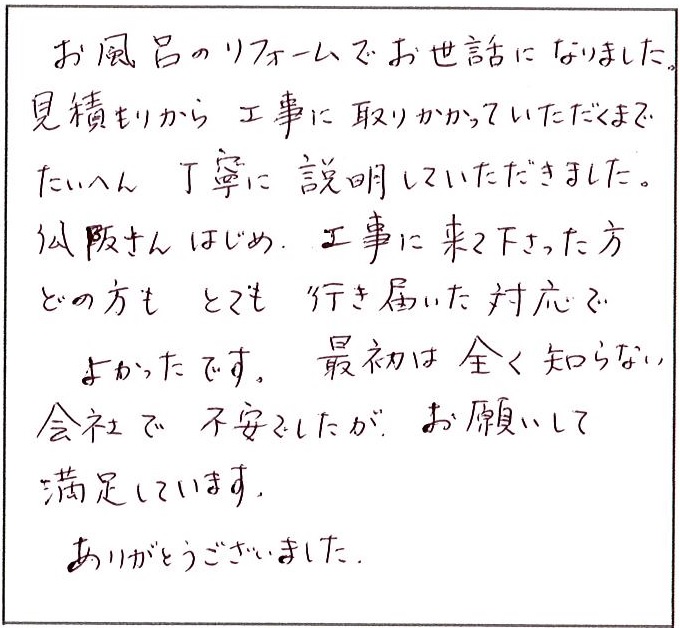 お風呂のリフォームでお世話になりました。
見積もりから 工事に 取りかかっていただくまで
たいへん 丁寧に 説明していただきました。
松阪さんはじめ、工事に来て下さった方
どの方も とても 行き届いた対応で
よかったです。 最初は全く知らない
会社で 不安でしたが、お願いして
満足しています。
ありがとうございました。